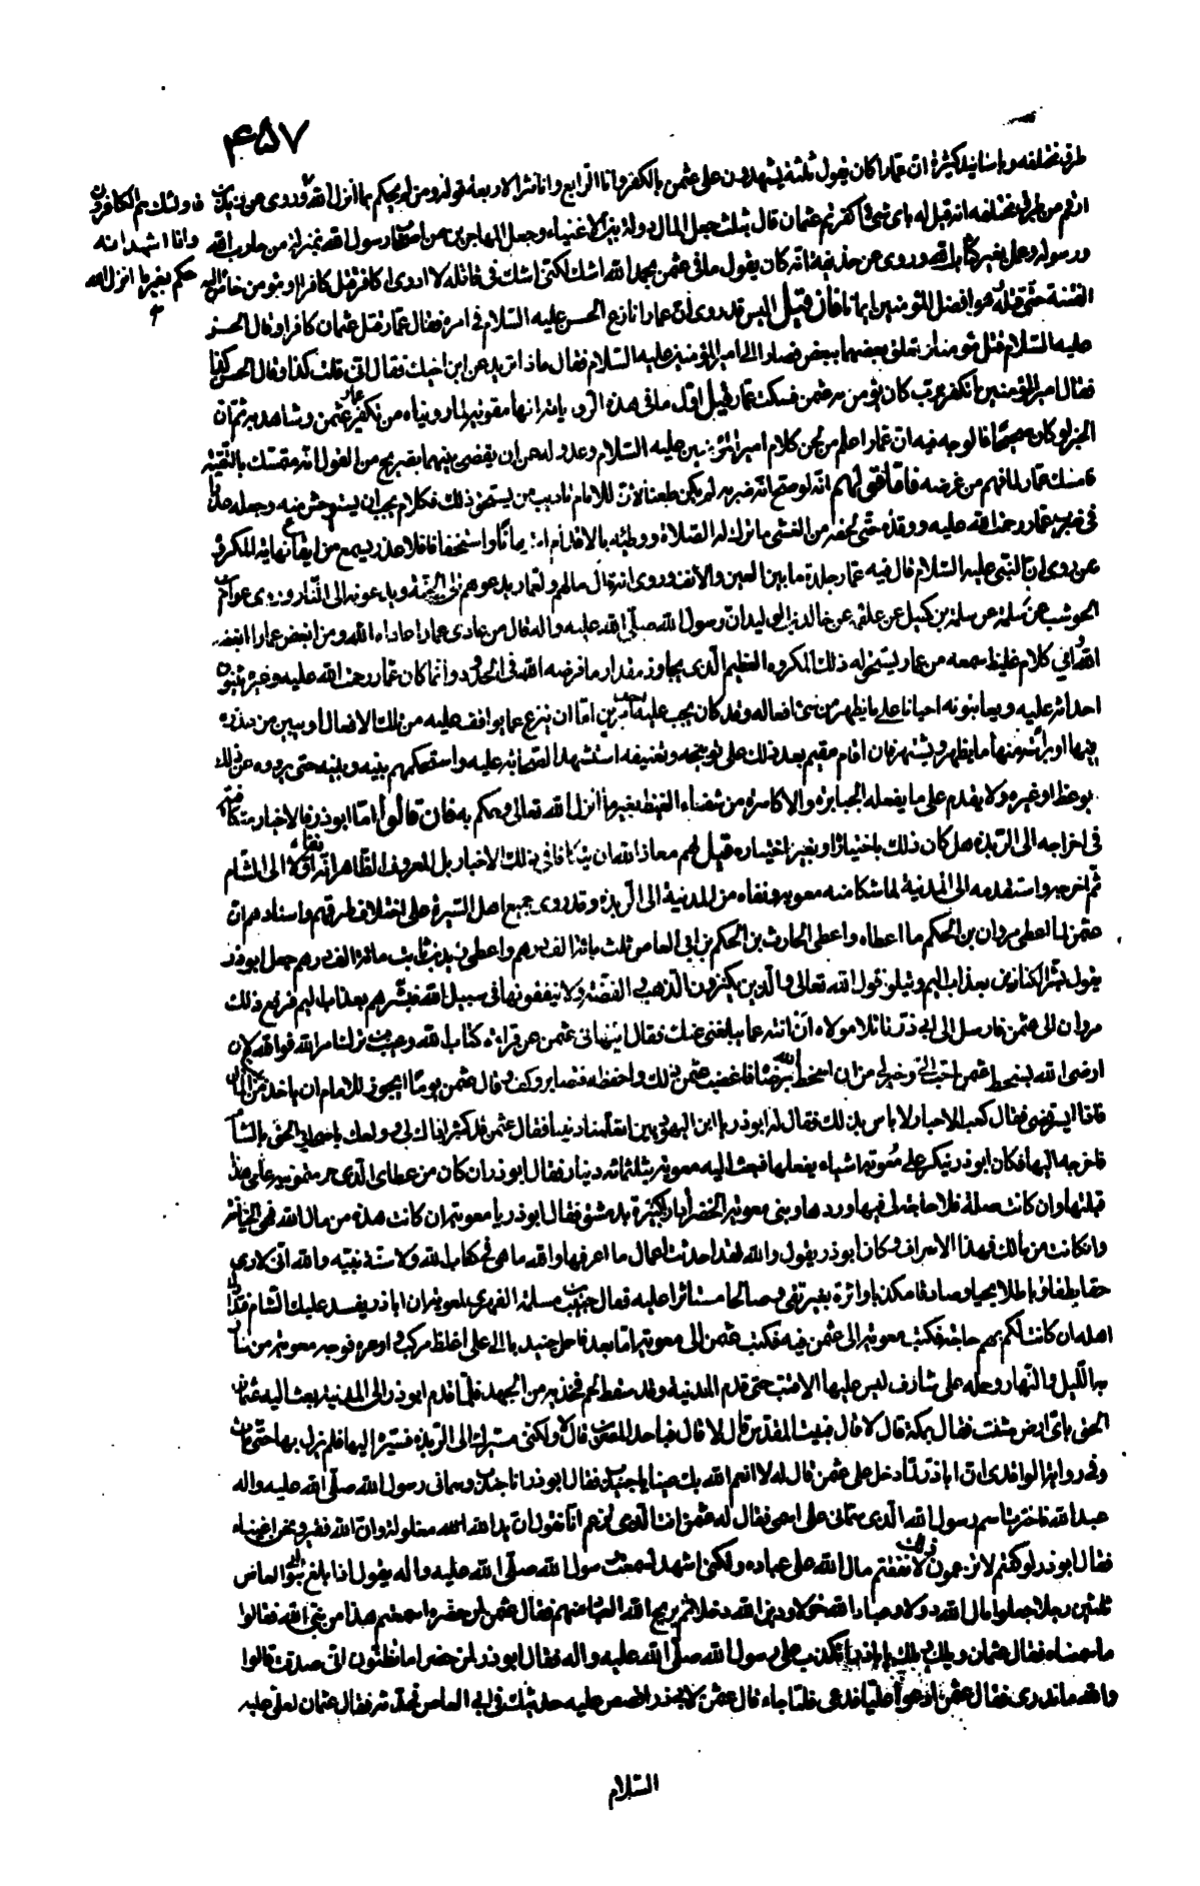 ۴۵۷
طرق مختلفه وباسانيد كثيرة ان عمارا كان يقول ثلثة يشهدون على عثمن بالكفر وانا الرابع وانا شر الاربعة قوله ومن لم يحكم بما انزل الله وروى عن زيد بن فاولئك هم الكافرون
ارقم من طرق مختلفه انه قيل له باى شئ اكفرتم عثمان قال بثلث جعل المال دولة بين الاغنياء وجعل المهاجرين من اصحاب رسول الله بمنزلة من حارب الله وانا اشهد انه
ورسوله وعمل بغير كتاب الله وروى عن حذيفة انه كان يقول ما فى عثمن بحمد الله اشك لكنى اشك فى قاتله لا ادرى اكافر قتل كافرا او مؤمن خاض اليه حكم بغير ما انزل الله
الفتنة حتى قتله هو افضل المؤمنين ايمانا فان قيل اليس قد روى ان عمارا نازع الحسن عليه السلام فى امره فقال عمار قتل عثمان كافرا وقال الحسن
عليه السلام قتل مؤمنا تعلق بعضهما ببعض فصارا الى امير المؤمنين عليه السلام فقال ماذا تريد من ابن اخيك فقال انى قلت كذا وقال الحسن كذا
فقال امير المؤمنين اتكفر برب كان يؤمن به عثمن فسكت عمار قيل اول ما فى هذه الرواية انها مقوية لما رويناه من تكفير عمار عثمن وشاهدة به ثم ان
الخبر لو كان صحيحا فالوجه فيه ان عمارا علم من لحن كلام امير المؤمنين عليه السلام وعدوله عن ان يقضى بينهما بصريح من القول انه متمسك بالتقية
فامسك عمار لما فهم من غرضه فاما قولهم انه لو صح انه ضربه لم يكن طعنا لان للامام تاديب من يستحق ذلك فكلام يجب ان يستوحش منه وجعله عذرا
فى ضرب عمار رحمة الله عليه ووقذه حتى لحقه من الغشى ما ترك له الصلاة ووطئه بالاقدام امتهانا واستخفافا فلا عذر يسمع من ايقاع نهاية المكروه
عن روى ان النبى عليه السلام قال فيه عمار جلدة ما بين العين والانف وروى انه قال ما لهم ولعمار يدعوهم الى الجنة ويدعونه الى النار وروى عوام بن
الحوشب عن سلمة بن كهيل عن علقمة عن خالد بن الوليد ان رسول الله صلى الله عليه واله قال من عادى عمارا عاداه الله ومن ابغض عمارا ابغضه
الله واى كلام غليظ سمعه من عمار يستحق له ذلك المكروه العظيم الذى يجاوز مقدار ما فرضه الله فى الحدود وانما كان عمار رحمة الله عليه وغيره يثبتون
احداثه عليه ويعاتبونه احيانا على ما يظهر من سئ افعاله وقد كان يجب عليه احد امرين اما ان ينزع عما يوافق عليه من تلك الافعال او يبين من عذره
فيها او براءته منها ما يظهر ويشتهر فان اقام مقيم بعد ذلك على توبيخه وتعنيفه استشهد الصحابة عليه واستحكمهم بينه وبينه حتى يردوه عن ذلك
بوعظ او غيره ولا يقدم على ما يفعله الجبابرة والاكاسرة من شفاء الغيظ بغير ما انزل الله تعالى وحكم به فان قالوا اما ابوذر فالاخبار متكافئة
فى اخراجه الى الربذة هل كان ذلك باختياره او بغير اختياره قيل لهم معاذ الله ان يتكافأ فى ذلك الاخبار بل المعروف الظاهر انه نفاه اولا الى الشام
ثم اخرجه واستقدمه الى المدينة لما شكا منه معوية ونفاه من المدينة الى الربذة وقد روى جميع اهل السيرة على اختلاف طرقهم واسنادهم ان
عثمن لما اعطى مروان بن الحكم ما اعطاه واعطى الحارث بن الحكم بن ابى العاص ثلث مائة الف درهم واعطى زيد بن ثابت مائة الف درهم جعل ابوذر
يقول بشر الكانزين بعذاب اليم ويتلو قول الله تعالى والذين يكنزون الذهب والفضة ولا ينفقونها فى سبيل الله فبشرهم بعذاب اليم فرفع ذلك
مروان الى عثمن فارسل الى ابى ذر نائلا مولاه ان انته عما يبلغنى عنك فقال اينهانى عثمن عن قراءة كتاب الله وعيب من ترك امر الله فوالله لان
ارضى الله بسخط عثمن احب الى وخير لى من ان اسخط الله برضاه فاغضب عثمن ذلك واحفظه فتصابر وكف وقال عثمن يوما ايجوز للامام ان ياخذ من المال
فاذا ايسر قضى فقال كعب الاحبار ولا باس بذلك فقال له ابوذر يا ابن اليهوديين اتعلمنا ديننا فقال عثمن قد كثر اذاك لى وولعك باصحابى الحق بالشام
فاخرجه اليها فكان ابوذر ينكر على معوية اشياء يفعلها فبعث اليه معوية بثلثمائة دينار فقال ابوذر ان كان من عطاى الذى حرمتمونيه عامى هذا
قبلتها وان كانت صلة فلا حاجة لى فيها وردها وبنى معوية الخضراء بدمشق فقال ابوذر يا معوية ان كانت هذه من مال الله فهى الخيانة
وان كانت من مالك فهذا الاسراف وكان ابوذر يقول والله لقد احدثت اعمال ما اعرفها والله ما هى فى كتاب الله ولا سنة نبيه والله انى لارى
حقا يطفا وباطلا يحيا وصادقا مكذبا واثرة بغير تقى وصالحا مستاثرا عليه فقال حبيب بن مسلمة الفهرى لمعوية ان اباذر يفسد عليك الشام فتدارك
اهله ان كانت لكم بهم حاجة فكتب معوية الى عثمن فيه فكتب عثمن الى معوية اما بعد فاحمل جنيدبا الى على اغلظ مركب واوعره فوجه معوية من سار
به الليل والنهار وحمله على شارف ليس عليها الا قتب حتى قدم المدينة وقد سقط لحم فخذيه من الجهد فلما قدم ابوذر الى المدينة بعث اليه عثمان
الحق باى ارض شئت فقال بمكة قال لا قال فبيت المقدس قال لا قال فباحد المصرين قال لا ولكنى مسيرك الى الربذة فسيره اليها فلم يزل بها حتى مات
وفى رواية الواقدى ان اباذر لما دخل على عثمن قال له لا انعم الله بك عينا يا جنيدب فقال ابوذر انا جندب وسمانى رسول الله صلى الله عليه واله
عبد الله فاخترت اسم رسول الله الذى سمانى على اسمى فقال له عثمن انت الذى تزعم انا نقول ان يد الله مغلولة وان الله فقير ونحن اغنياء
فقال ابوذر لو كنتم لا تزعمون ذلك لانفقتم مال الله على عباده ولكنى اشهد لسمعت رسول الله صلى الله عليه واله يقول اذا بلغ بنو ابى العاص
ثلثين رجلا جعلوا مال الله دولا وعباد الله خولا ودين الله دخلا ثم يريح الله العباد منهم فقال عثمن لمن حضره اسمعتم هذا من نبى الله فقالوا
ما سمعناه فقال عثمان ويلك يا اباذر اتكذب على رسول الله صلى الله عليه واله فقال ابوذر لمن حضر اما تظنون انى صدقت قالوا
والله ما ندرى فقال عثمن ادعوا عليا فدعى فلما جاء قال عثمن لابى ذر اقصص عليه حديثك فى بنى ابى العاص فحدثه فقال عثمان لعلى عليه
السلام